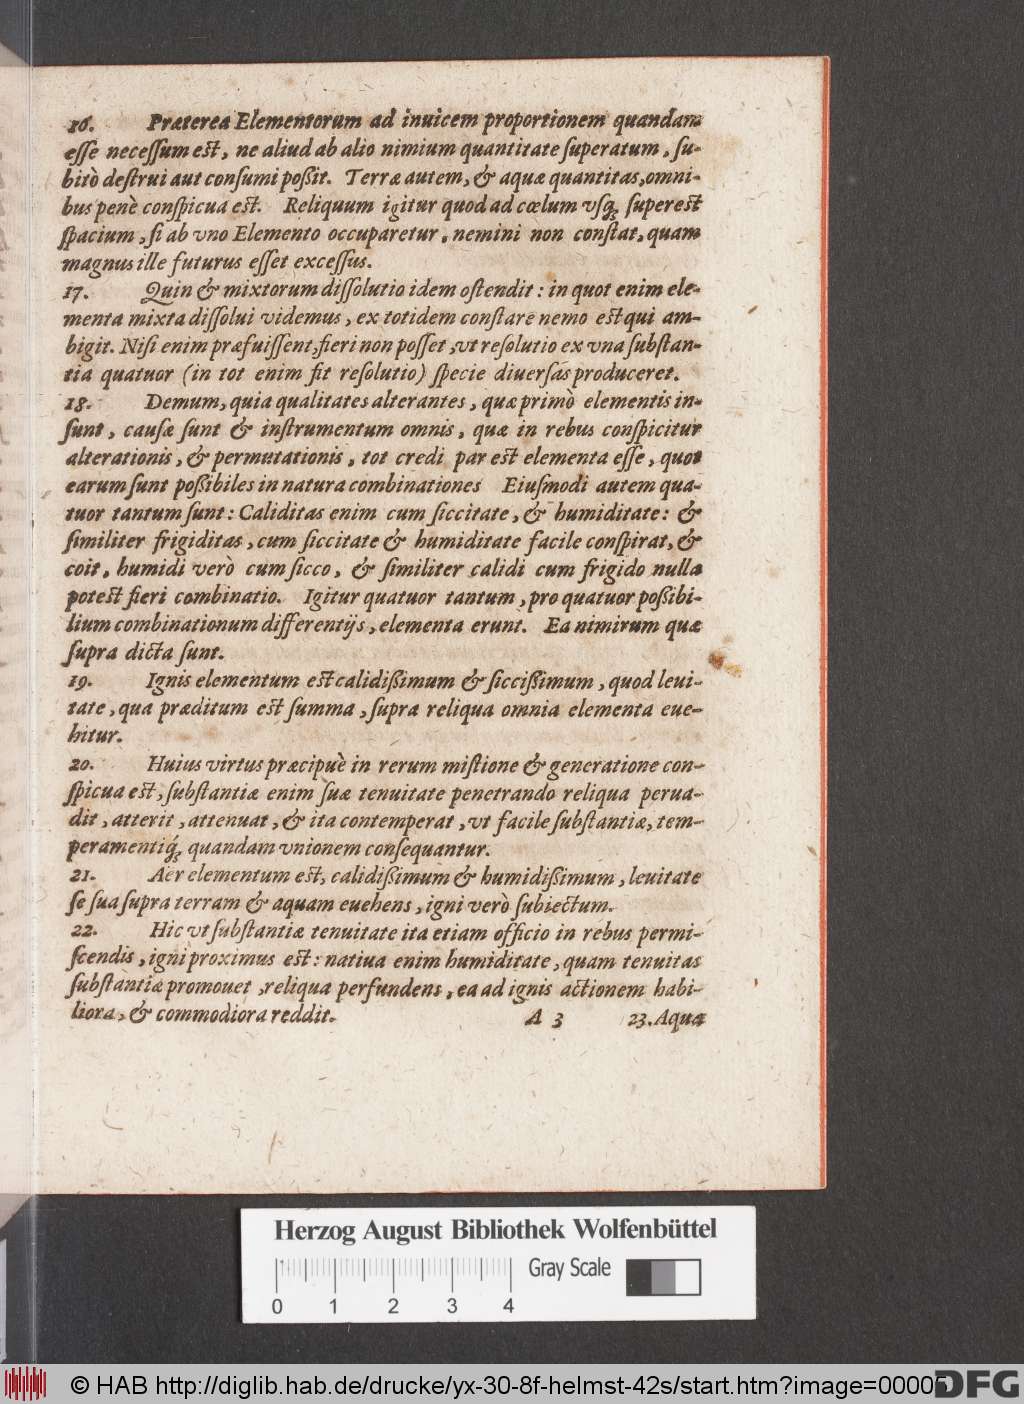 16. Præterea Elementorum ad inuicem proportionem quandam
eſſe neceſſum est, ne aliud ab alio nimium quantitate ſuperatum, ſu-
bitò deſtrui aut conſumi poßit. Terræ autem, & aquæ quantitas, omni-
bus penè conſpicua est. Reliquum igitur quod ad cœlum vſq; ſuperest
ſpacium, ſi ab vno Elemento occuparetur, nemini non conſtat, quam
magnus ille futurus eſſet exceſſus.
17. Quin & mixtorum diſſolutio idem oſtendit: in quot enim ele-
menta mixta diſſolui videmus, ex totidem conſtare nemo est qui am-
bigit. Niſi enim præfuiſſent, fieri non poſſet, vt reſolutio ex vna ſubſtan-
tia quatuor (in tot enim fit reſolutio) ſpecie diuerſas produceret.
18. Demum, quia qualitates alterantes, quæ primò elementis in-
ſunt, cauſæ ſunt & inſtrumentum omnis, quæ in rebus conſpicitur
alterationis, & permutationis, tot credi par est elementa eſſe, quot
earum ſunt poßibiles in natura combinationes Eiuſmodi autem qua-
tuor tantum ſunt: Caliditas enim cum ſiccitate, & humiditate: &
ſimiliter frigiditas, cum ſiccitate & humiditate facile conſpirat, &
coit, humidi verò cum ſicco, & ſimiliter calidi cum frigido nulla
potest fieri combinatio. Igitur quatuor tantum, pro quatuor poßibi-
lium combinationum differentijs, elementa erunt. Ea nimirum quæ
ſupra dicta ſunt.
19. Ignis elementum est calidißimum & ſiccißimum, quod leui-
tate, qua præditum est ſumma, ſupra reliqua omnia elementa eue-
hitur.
20. Huius virtus præcipuè in rerum miſtione & generatione con-
ſpicua est, ſubſtantiæ enim ſuæ tenuitate penetrando reliqua perua-
dit, atterit, attenuat, & ita contemperat, vt facile ſubſtantiæ, tem-
peramentiq́; quandam vnionem conſequantur.
21. Aër elementum est, calidißimum & humidißimum, leuitate
ſe ſua ſupra terram & aquam euehens, igni verò ſubiectum.
22. Hic vt ſubſtantiæ tenuitate ita etiam officio in rebus permi-
ſcendis, igni proximus est: natiua enim humiditate, quam tenuitas
ſubſtantiæ promouet, reliqua perfundens, ea ad ignis actionem habi-
liora, & commodiora reddit.
A 3 23. Aqua
Herzog August Bibliothek Wolfenbüttel
Gray Scale
0 1 2 3 4
© HAB http://diglib.hab.de/drucke/yx-30-8f-helmst-42s/start.htm?image=00005
DFG